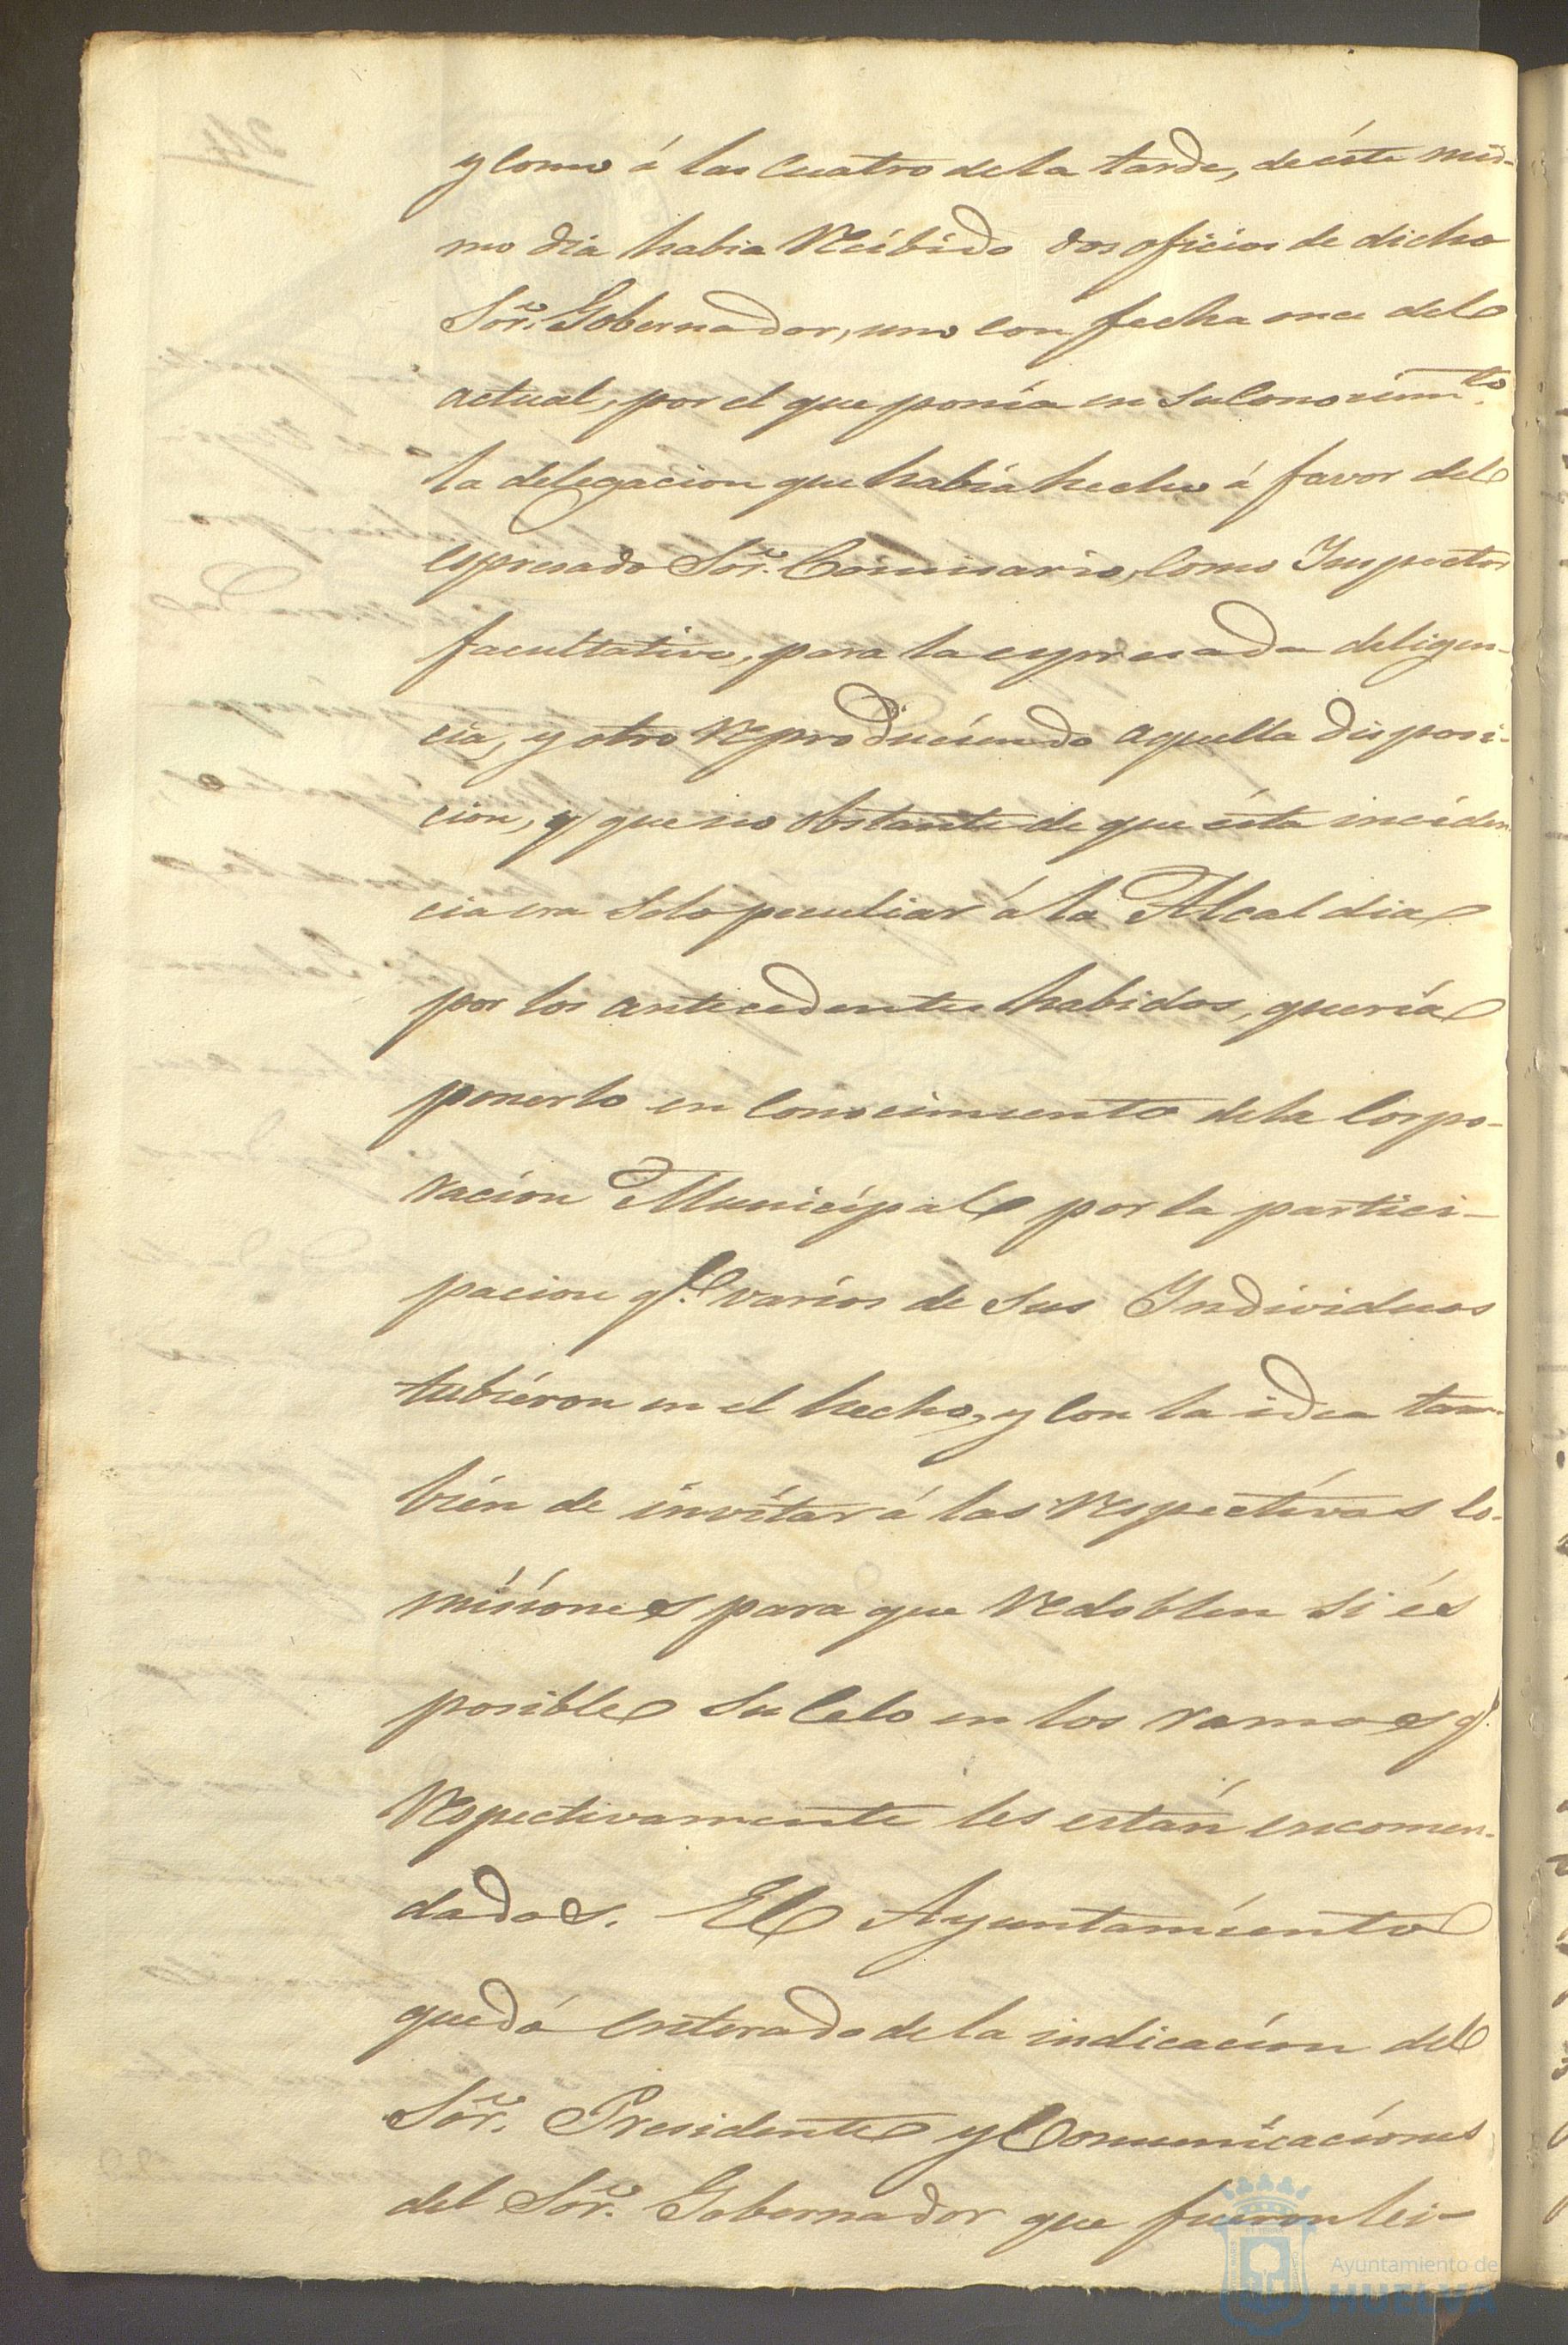 y como á las cuatro de la tarde, de éste mis-
mo dia habia recibido dos oficios de dicho
Sor. Gobernador, uno con fecha once del
actual, por el que ponía en su conocimto.
la delegacion que había hecho á favor del
espresado Sor. Comisario, como Inspector
facultativo, para la espresada deligen-
cia, y otro reproduciendo aquella disposi-
cion, y que no obstante de que ésta inciden
cia era solo peculiar á la Alcaldia
por los antecedentes habidos, quería
ponerlo en conocimiento de la Corpo-
racion Municipal por la partici-
pacion qe. varios de sus Individuos
tubieron en el hecho, y con la idea tam-
bien de invitar á las respectivas Co-
misiones para que redoblen si és
posible su celo en los ramos q.
respectivamente les están encomen-
dados. El Ayuntamiento
quedó enterado de la indicacion del
Sor. Presidente y Comunicaciones
del Sor. Gobernador que fueron lei-
Ayuntamiento de
HUELVA